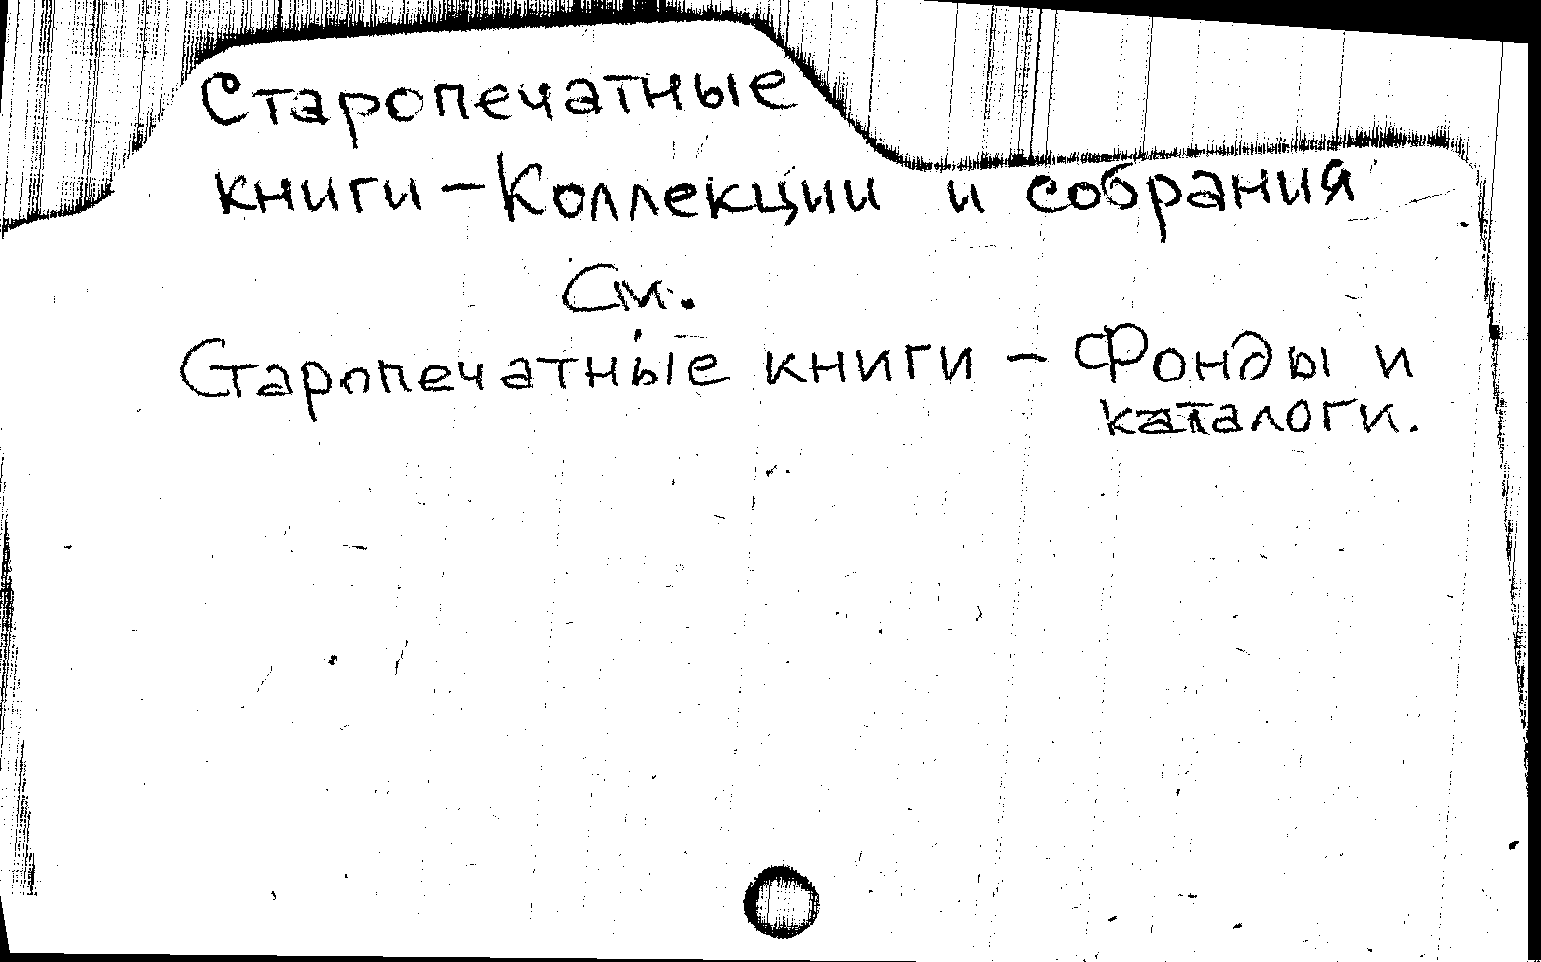 Старопечатные
книги – Коллекции и собрания
См.
Старопечатные книги – Фонды и
каталоги.